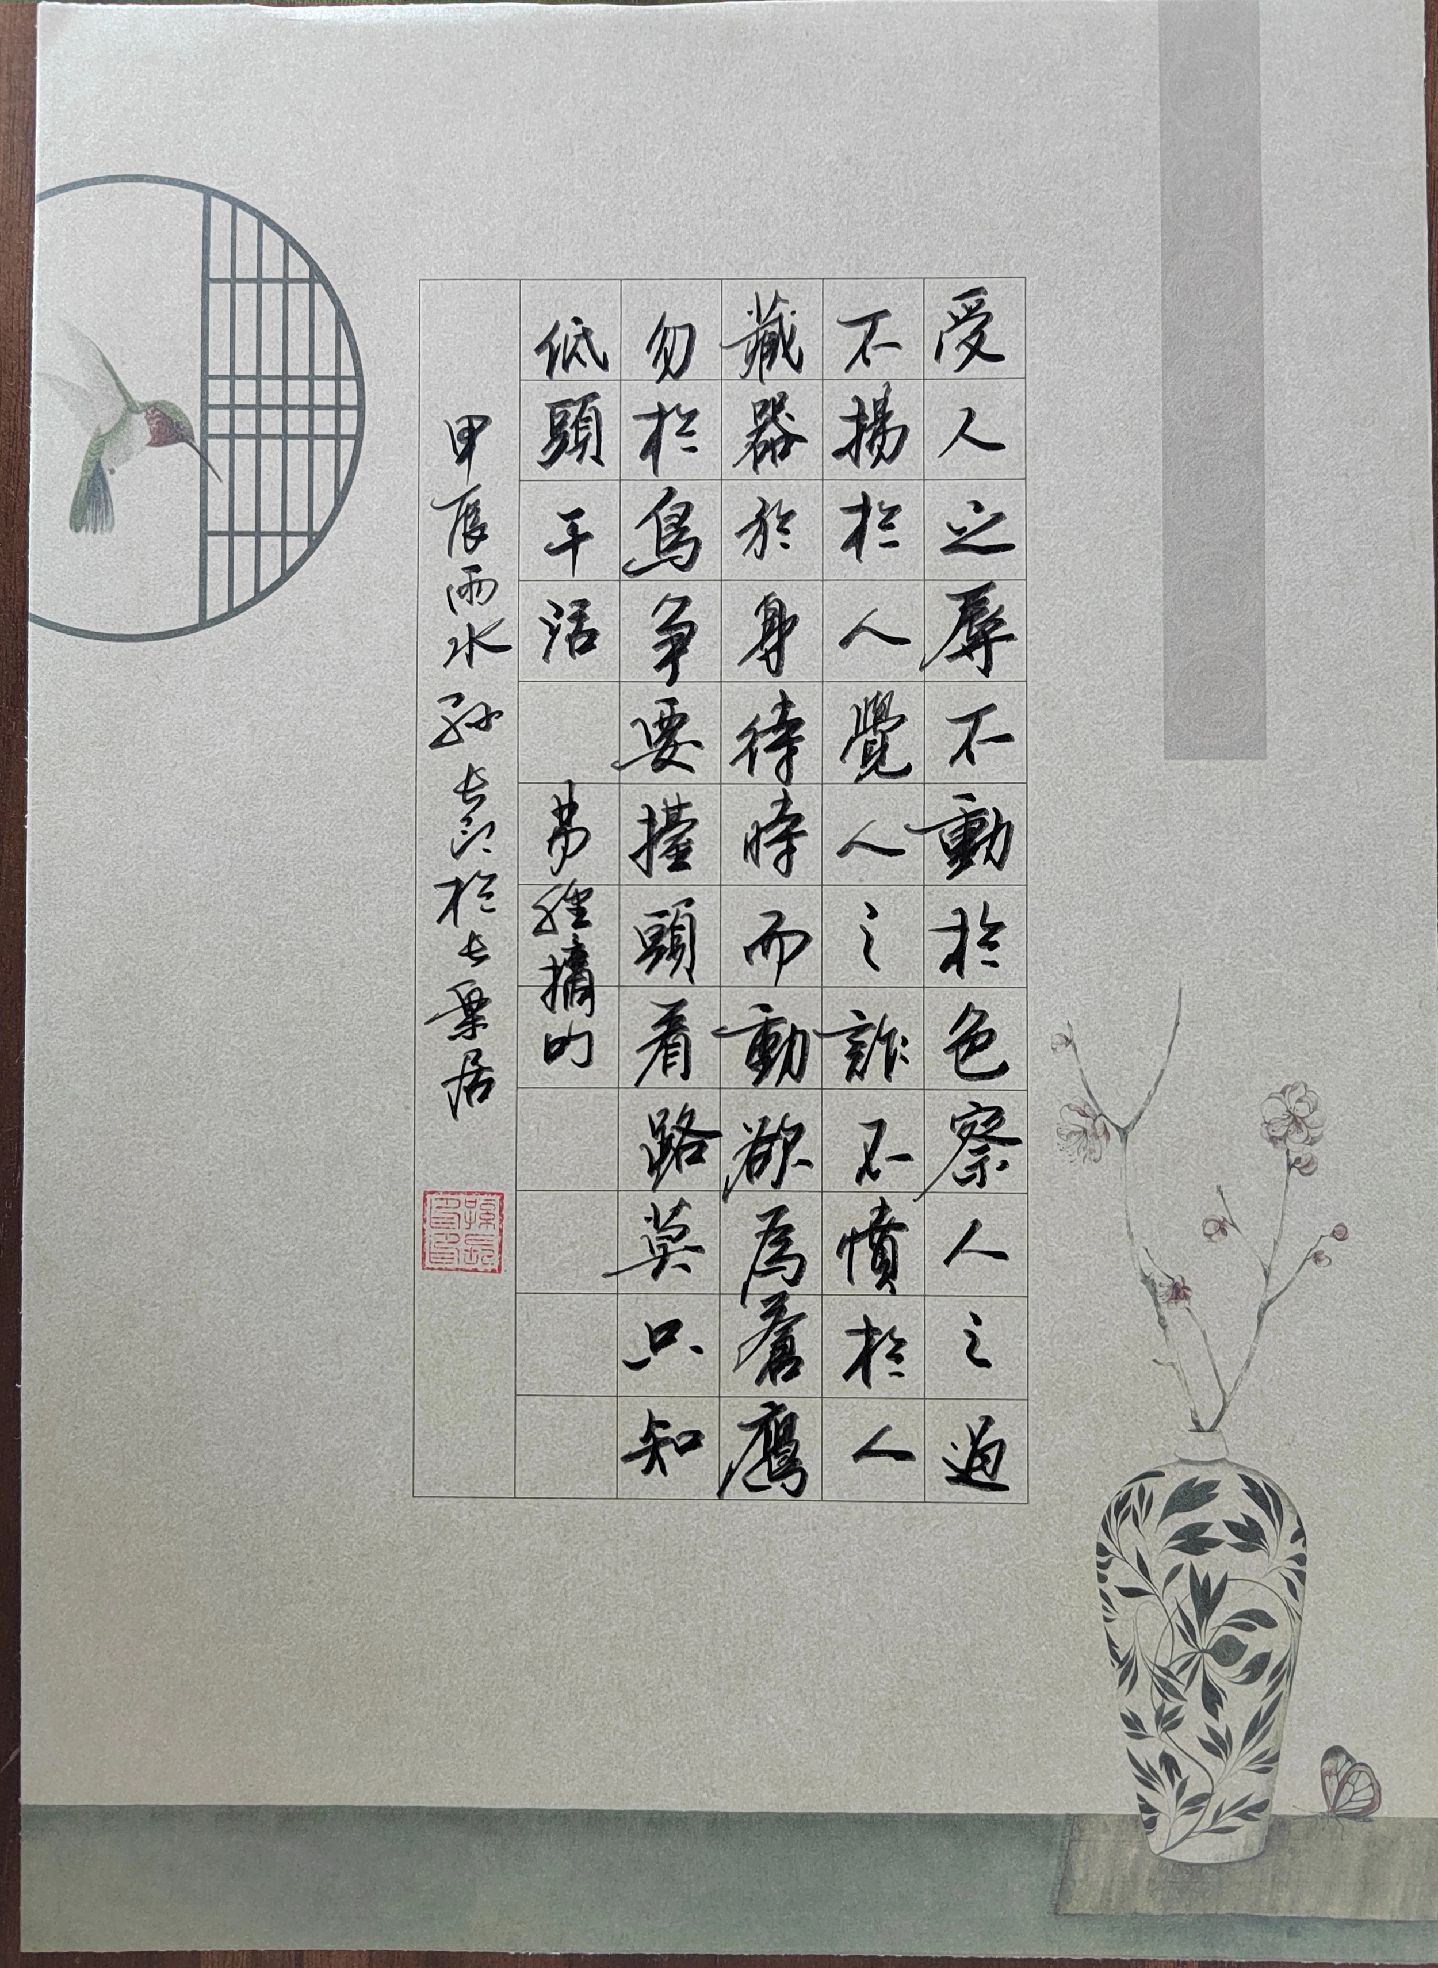 受人之辱不動於色察人之過
不揚於人覺人之詐不憤於人
藏器於身待時而動欲為蒼鷹
勿於鳥爭要擡頭看路莫只知
低頭干活 易經摘的
甲辰雨水孫長印於長栗居